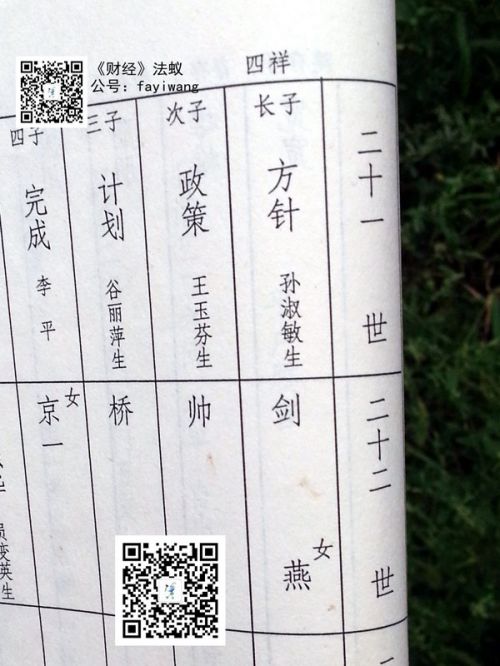 《财经》法蚁
公号：fayiwang
四祥
二十一世
长子
方针
孙淑敏生
次子
政策
王玉芬生
三子
计划
谷丽萍生
四子
完成
李平
二十二世
剑
女
燕
帅
桥
女
京一